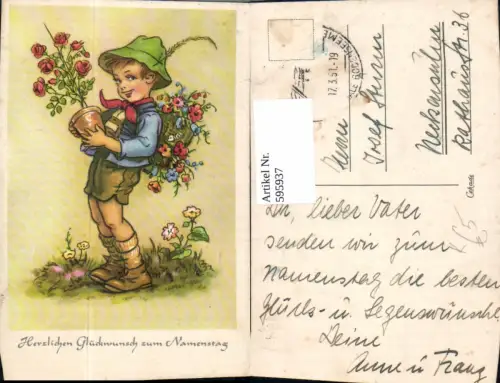 Herzlichen Glückwunsch zum Namenstag
Artikel Nr.
595937
17.3.51.-19
Herrn
Josef
Neckarsulm
Rathausstr. 36
Cekade
€5
Dir, lieber Vater
senden wir zum
Namenstag die besten
Glücks- u. Segenswünsche
Deine
Anne u Franz